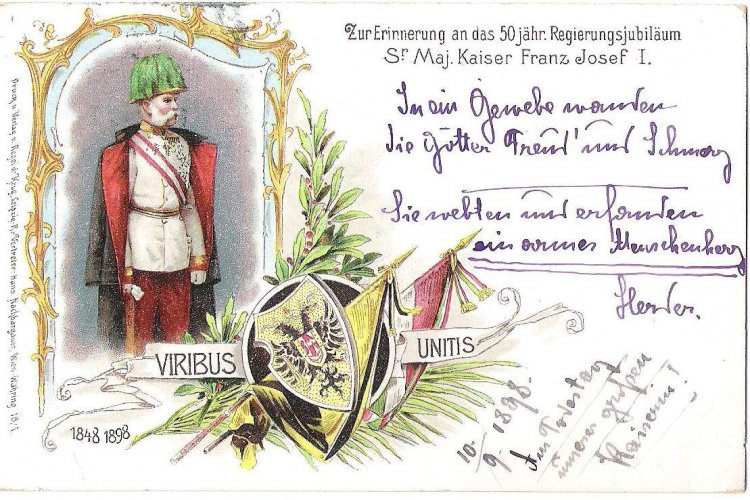 Zur Erinnerung an das 50 jähr. Regierungsjubiläum
Sr Maj. Kaiser Franz Josef I.
In ein Gewebe wanden
die Götter Freud' und Schmerz
Sie webten und erfanden
ein armes Menschenherz
Herder.
VIRIBUS UNITIS
1848 1898
10./9. 1898.
Am Todestag
unserer großen
Kaiserin!
Druck u. Verlag v.